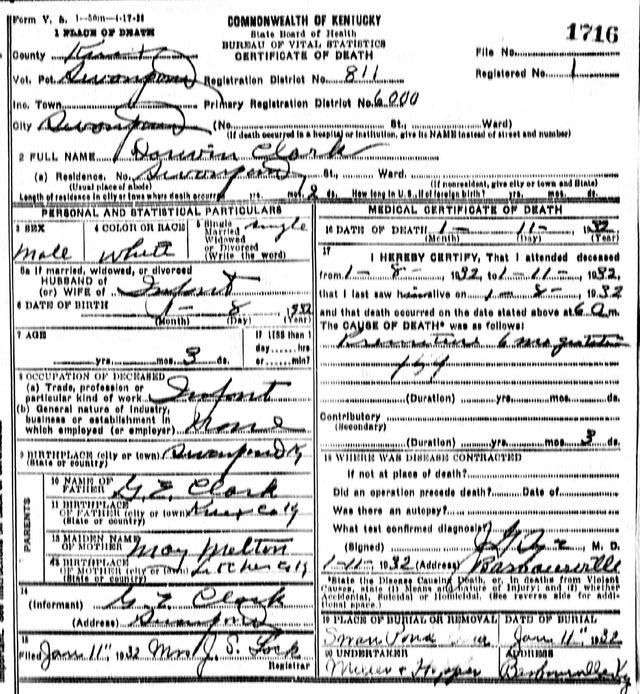 Form V. S. 1-50m-1-17-28
COMMONWEALTH OF KENTUCKY
State Board of Health
BUREAU OF VITAL STATISTICS
CERTIFICATE OF DEATH
1716
1 PLACE OF DEATH
County Knox
File No.
Vot. Pct. Registration District No. 811
Registered No. 1
Inc. Town Primary Registration District No. 6000
City (No. St., Ward)
(If death occurred in a hospital or institution, give its NAME instead of street and number)
2 FULL NAME Darwin Clark
(a) Residence. No. St., Ward.
(Usual place of abode) (If nonresident, give city or town and State)
Length of residence in city or town where death occurred yrs. mos. ds. How long in U. S., if of foreign birth? yrs. mos. ds.
PERSONAL AND STATISTICAL PARTICULARS
3 SEX
Male
4 COLOR OR RACE
White
5 Single
Married
Widowed
or Divorced
(Write the word)
single
5a If married, widowed, or divorced
HUSBAND of
(or) WIFE of Infant
6 DATE OF BIRTH 1- 8 1932
(Month) (Day)
7 AGE
yrs. mos. 3 ds.
If LESS than 1
day hrs
or min?
8 OCCUPATION OF DECEASED
(a) Trade, profession or
particular kind of work Infant
(b) General nature of Industry,
business or establishment in
which employed (or employer) None
9 BIRTHPLACE (city or town) Ky
(State or country)
PARENTS
10 NAME OF
FATHER G. E. Clark
11 BIRTHPLACE
OF FATHER (city or town) Knox Co Ky
(State or country)
12 MAIDEN NAME
OF MOTHER May Melton
13 BIRTHPLACE
OF MOTHER (city or town) Letcher Co Ky
(State or country)
14
(Informant) G. E. Clark
(Address)
15
Filed Jan 11" 1932 Mrs J. S. Lock
Registrar
MEDICAL CERTIFICATE OF DEATH
16 DATE OF DEATH 1- 11- 1932
(Month) (Day) (Year)
17
I HEREBY CERTIFY, That I attended deceased
from 1-8- 1932 to 1-11- 1932,
that I last saw him alive on 1-8- 1932
and that death occurred on the date stated above at 6 a m.
The CAUSE OF DEATH* was as follows:
Premature 6 mo gestation
159
(Duration) yrs. mos. ds.
Contributory
(Secondary)
(Duration) yrs. mos. 3 ds.
18 WHERE WAS DISEASE CONTRACTED
If not at place of death?
Did an operation precede death? Date of
Was there an autopsy?
What test confirmed diagnosis?
(Signed) M. D.
1-11- 1932 (Address) Barbourville
*State the Disease Causing Death, or, in deaths from Violent
Causes, state (1) Means and nature of Injury; and (2) whether
Accidental, Suicidal or Homicidal. (See reverse side for additional space.)
19 PLACE OF BURIAL OR REMOVAL
Swan Pond
DATE OF BURIAL
Jan 11" 1932
20 UNDERTAKER
Miller & Hopper
ADDRESS
Barbourville Ky